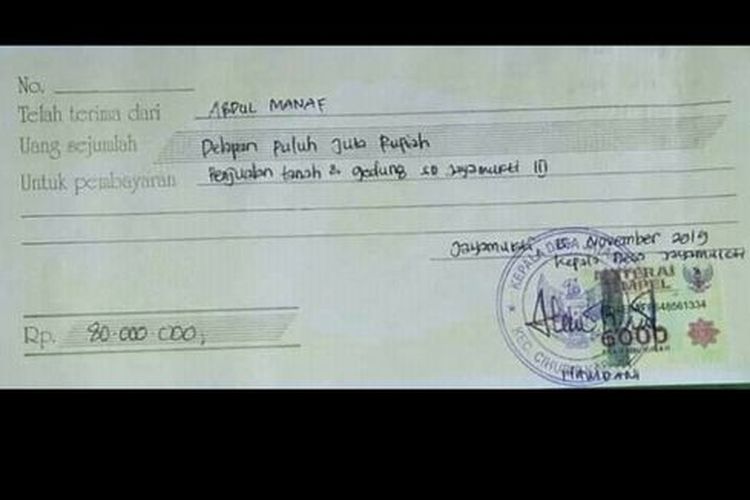 No.
Telah terima dari ABDUL MANAF
Uang sejumlah Delapan Puluh Juta Rupiah
Untuk pembayaran Penjualan tanah & gedung SD Jayamukti II
Jayamukti, November 2019
Kepala Desa Jayamukti
KEPALA DESA
METERAI
TEMPEL
6000
KEC. CIHU
HAMDANI
Rp. 80.000 000,